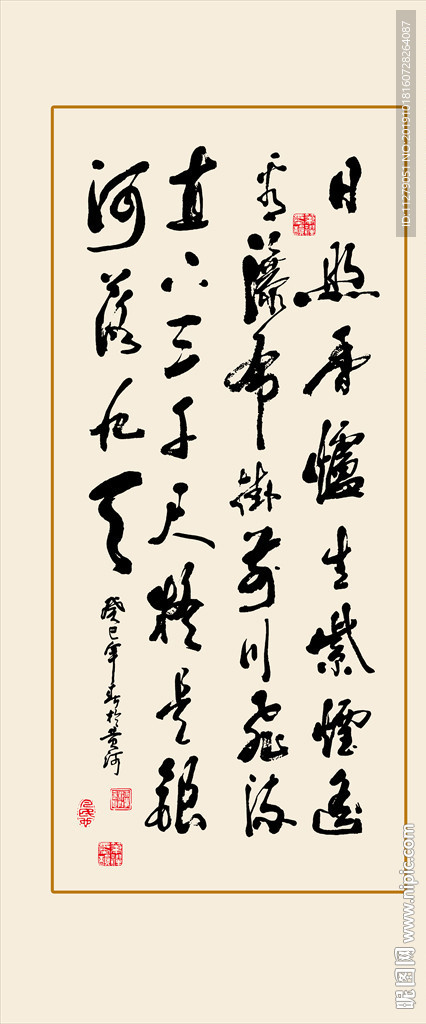 日照香爐生紫煙遙
看瀑布掛前川飛流
直下三千尺疑是銀
河落九天
癸巳年春於黄河
ID:11279051 NO:20191018160728264087
昵图网 www.nipic.com